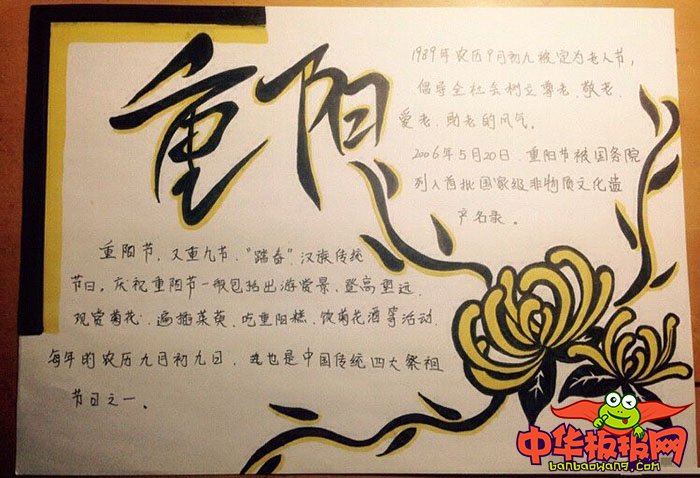 重阳
1989年农历9月初九被定为老人节,
倡导全社会树立尊老、敬老、
爱老、助老的风气。
2006年5月20日、重阳节被国务院
列入首批国家级非物质文化遗
产名录。
重阳节,又重九节、“踏春”汉族传统
节日。庆祝重阳节一般包括出游赏景、登高望远、
观赏菊花、遍插茱萸、吃重阳糕、饮菊花酒等活动,
每年的农历九月初九日、也是中国传统四大祭祖
节日之一。
中华板报网
banbaowang.com